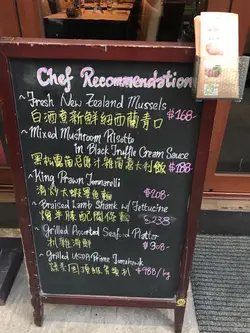 Chef Recommendation
~ Fresh New Zealand Mussels
白酒煮新鮮紐西蘭青口 $168-
~ Mixed Mushroom Risotto
in Black Truffle Cream Sauce
黑松露 汁雜菌意大利飯 $188-
~ King Prawn Tonnarelli
清炒大蝦 麵 $208-
~ Braised Lamb Shank w/ Fettucine
燴羊膝配闊條麵 $238
~ Grilled Assorted Seafood Platter
扒雜海鮮 $308-
~ Grilled USDA Prime Tomahawk
美國頂級 扒 $988/kg